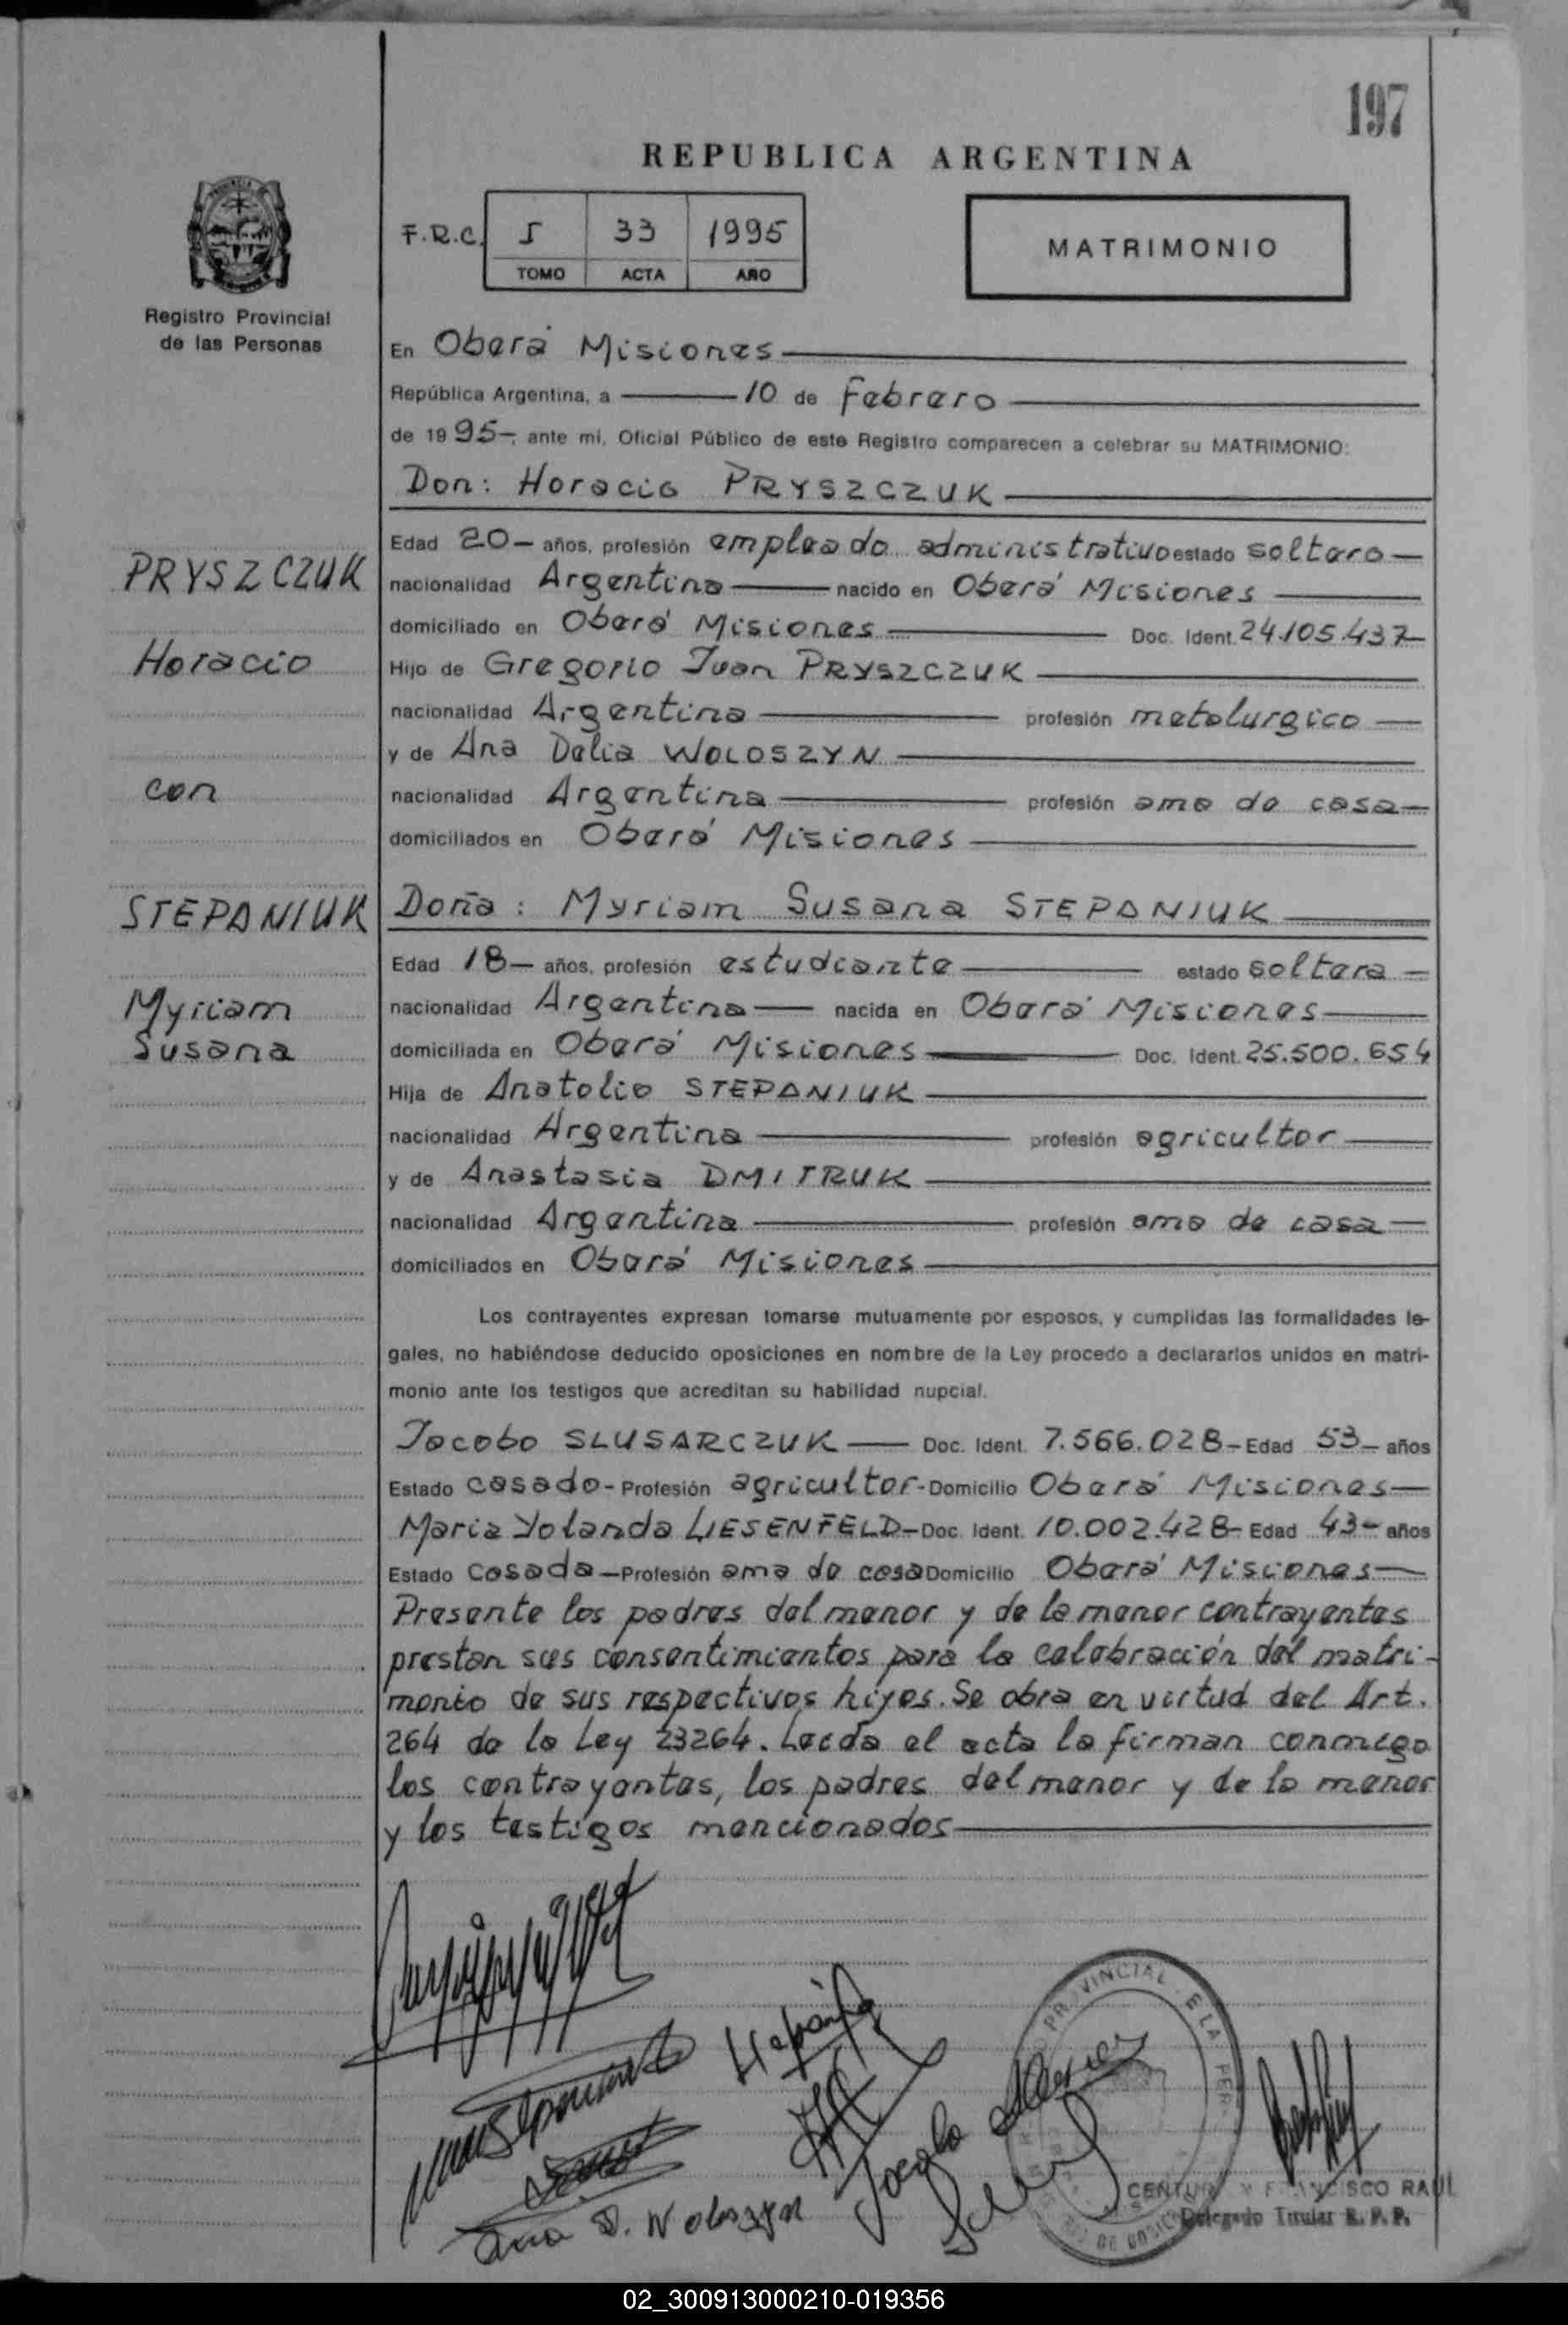 197
REPUBLICA ARGENTINA
F.R.C. 5 33 1995
TOMO ACTA AÑO
MATRIMONIO
Registro Provincial
de las Personas
En Oberá Misiones
República Argentina, a 10 de febrero
de 1995-, ante mi, Oficial Público de este Registro comparecen a celebrar su MATRIMONIO:
Don: Horacio PRYSZCZUK
Edad 20- años, profesión empleado administrativo estado soltero
PRYSZCZUK
nacionalidad Argentina nacido en Oberá Misiones
domiciliado en Oberá Misiones Doc. Ident. 24.105.437
Horacio
Hijo de Gregorio Juan PRYSZCZUK
nacionalidad Argentina profesión metalurgico
y de Ana Delia WOLOSZYN
con
nacionalidad Argentina profesión ama de casa
domiciliados en Oberá Misiones
STEPANIUK
Doña: Myriam Susana STEPANIUK
Edad 18- años, profesión estudiante estado soltera
Myriam
nacionalidad Argentina nacida en Oberá Misiones
Susana
domiciliada en Oberá Misiones Doc. Ident. 25.500.654
Hija de Anatolio STEPANIUK
nacionalidad Argentina profesión agricultor
y de Anastasia DMITRUK
nacionalidad Argentina profesión ama de casa
domiciliados en Oberá Misiones
Los contrayentes expresan tomarse mutuamente por esposos, y cumplidas las formalidades le-
gales, no habiéndose deducido oposiciones en nombre de la Ley procedo a declararlos unidos en matri-
monio ante los testigos que acreditan su habilidad nupcial.
Jacobo SLUSARCZUK Doc. Ident. 7.566.028- Edad 53- años
Estado casado- Profesión agricultor- Domicilio Oberá Misiones
Maria Yolanda LIESENFELD- Doc. Ident. 10.002.428- Edad 43- años
Estado casada- Profesión ama de casa Domicilio Oberá Misiones
Presente los padres del menor y de la menor contrayentes
prestan sus consentimientos para la celebración del matri-
monio de sus respectivos hijos. Se obra en virtud del Art.
264 de la Ley 23264. Leida el acta la firman conmigo
los contrayentes, los padres del menor y de la menor
y los testigos mencionados
Ana D. Woloszyn
PROVINCIAL
FRANCISCO RAUL
Delegado Titular R. P. P.
02_300913000210-019356